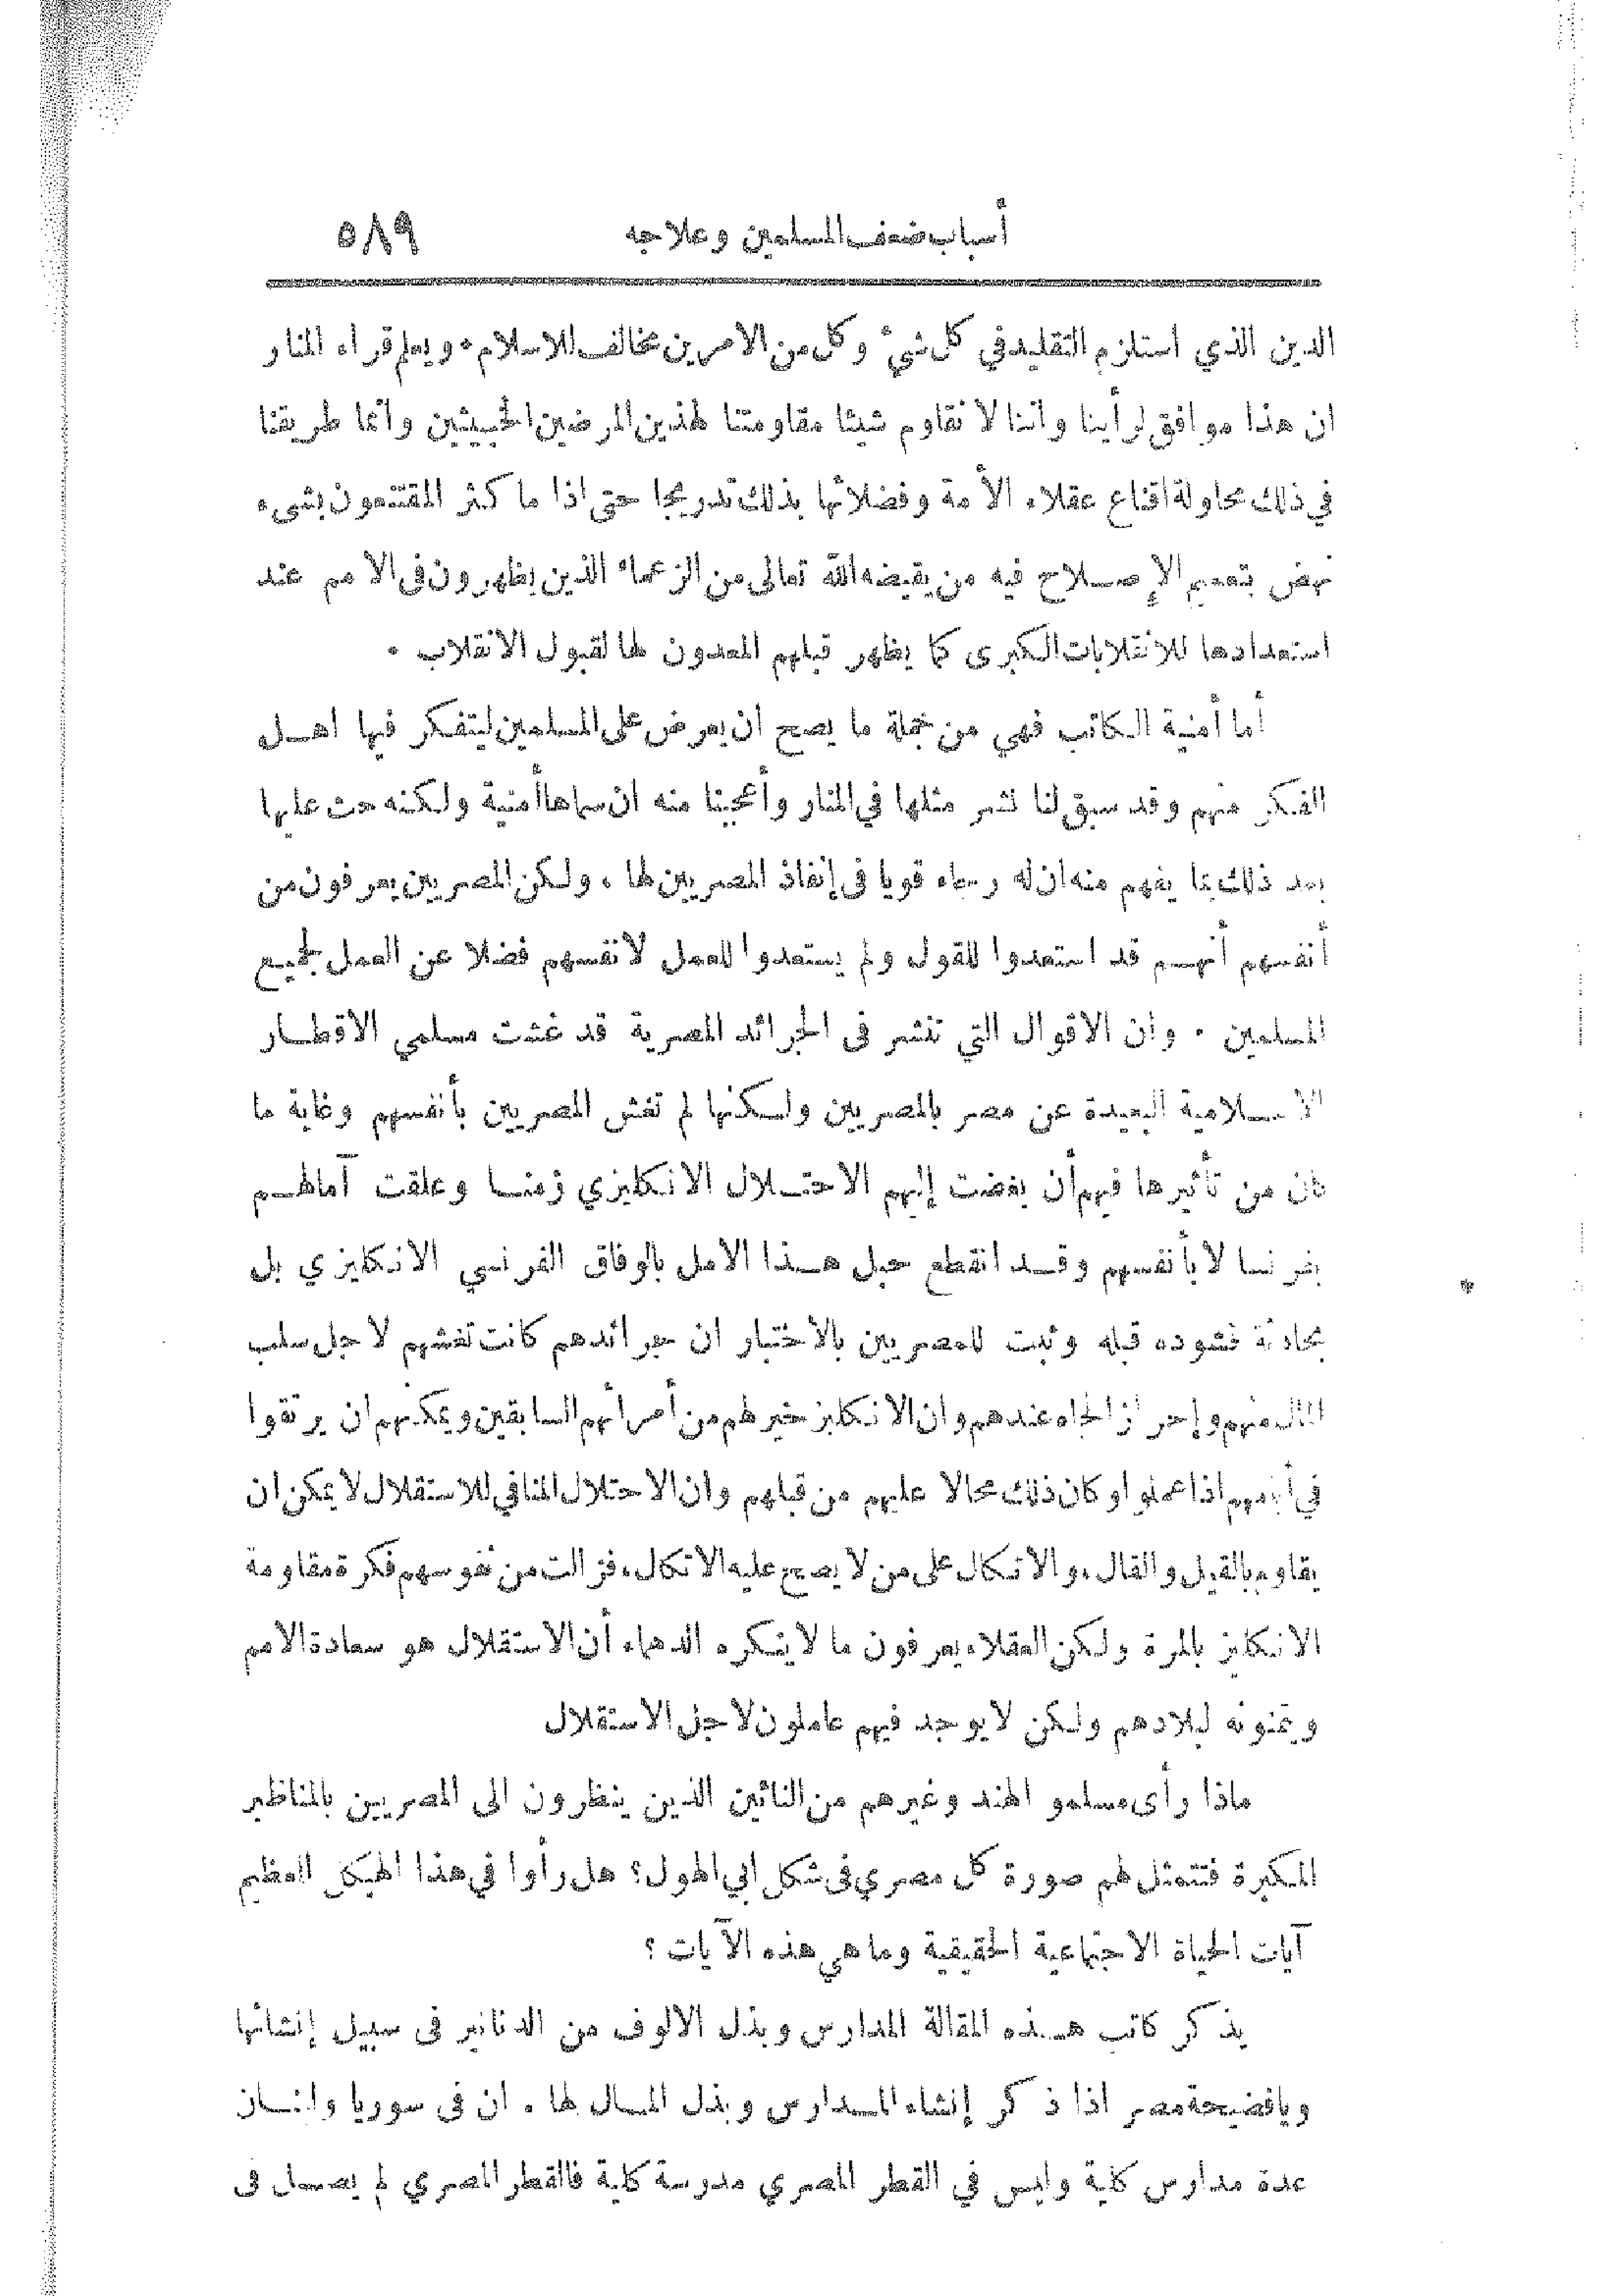 أسباب ضعف المسلمين وعلاجه ٥٨٩
الدين الذي استلزم التقليد في كل شيء وكل من الامرين مخالف للاسلام. ويعلم قراء المنار
ان هذا موافق لرأينا واننا لا نقاوم شيئا مقاومتنا لهذين المرضين الخبيثين وانما طريقنا
في ذلك محاولة اقناع عقلاء الأمة وفضلائها بذلك تدريجا حتى اذا ما كثر المقتنعون بشيء
نهض بتعميم الإصلاح فيه من يقيضه الله تعالى من الزعماء الذين يظهرون في الامم عند
استعدادها للانقلابات الكبرى كما يظهر قبلهم المعدون لها لقبول الانقلاب .
أما أمنية الكاتب فهي من جملة ما يصح ان يعرض على المسلمين ليتفكر فيها اهل
الفكر منهم وقد سبق لنا نشر مثلها في المنار وأعجبنا منه ان سماها أمنية ولكنه حث عليها
بعد ذلك بما يفهم منه ان له رجاء قويا في إنفاذ المصريين لها ، ولكن المصريين يعرفون من
أنفسهم أنهم قد استعدوا للقول ولم يستعدوا للعمل لانفسهم فضلا عن العمل لجميع
المسلمين . وان الاقوال التي تنشر في الجرائد المصرية قد غشت مسلمي الاقطار
الاسلامية البعيدة عن مصر بالمصريين ولكنها لم تغش المصريين بأنفسهم وغاية ما
كان من تأثيرها فيهم أن بغضت إليهم الاحتلال الانكليزي زمنا وعلقت آمالهم
بفرنسا لا بأنفسهم وقد انقطع حبل هذا الامل بالوفاق الفرنسي الانكليزي بل
بحادثة فشوده قبله وثبت للمصريين بالاختبار ان جرائدهم كانت تغشهم لاجل سلب
المال منهم وإحراز الجاه عندهم وان الانكليز خير لهم من أمرائهم السابقين ويمكنهم ان يرتقوا
في أيامهم اذا عملوا وكان ذلك محالا عليهم من قبلهم وان الاحتلال المنافي للاستقلال لا يمكن ان
يقاوم بالقيل والقال، والاتكال على من لا يصح عليه الاتكال، فزالت من نفوسهم فكرة مقاومة
الانكليز بالمرة ولكن العقلاء يعرفون ما لا ينكره الدهماء أن الاستقلال هو سعادة الامم
ويتمنونه لبلادهم ولكن لا يوجد فيهم عاملون لاجل الاستقلال
ماذا رأى مسلمو الهند وغيرهم من النائين الذين ينظرون الى المصريين بالمناظير
المكبرة فتتمثل لهم صورة كل مصري في شكل ابي الهول؟ هل رأوا في هذا الهيكل العظيم
آيات الحياة الاجتماعية الحقيقية وما هي هذه الآيات ؟
يذكر كاتب هذه المقالة المدارس وبذل الالوف من الدنانير في سبيل إنشائها
ويافضيحة مصر اذا ذكر إنشاء المدارس وبذل المال لها . ان في سوريا ولبنان
عدة مدارس كلية وليس في القطر المصري مدرسة كلية فالقطر المصري لم يصل في